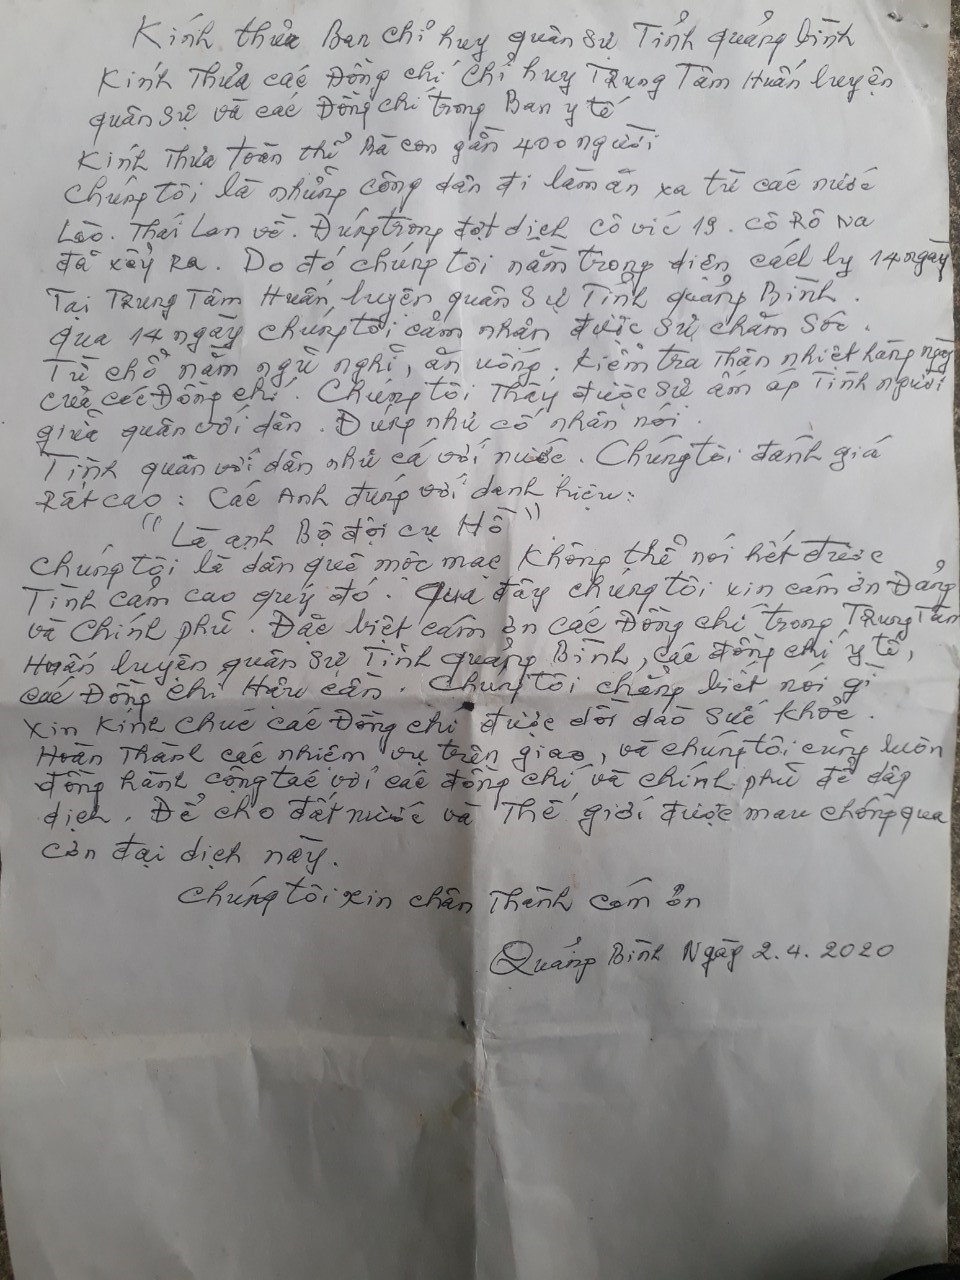 Kính thưa Ban chỉ huy quân sự Tỉnh quảng bình
Kính Thưa các Đồng chí Chỉ huy Trung Tâm Huấn luyện
quân sự và các Đồng chí trong Ban y tế
Kính Thưa toàn thể Bà con gần 400 người
chúng tôi là những công dân đi làm ăn xa từ các nước
Lào. Thái Lan về. Đúng trong đợt dịch cô vic 19. cô Rô Na
đã xảy ra. Do đó chúng tôi nằm trong diện cách ly 14 ngày
Tại Trung Tâm Huấn luyện quân sự Tỉnh quảng Bình.
qua 14 ngày chúng tôi cảm nhận được sự chăm sóc.
Từ chổ nằm ngũ nghĩ, ăn uống. kiểm tra Thân nhiệt hàng ngày
của các Đồng chí. Chúng tôi Thấy được sự ấm áp Tình người
giữa quân với dân. Đúng như cổ nhân nói.
Tình quân với dân như cá với nước. Chúng tôi đánh giá
Rất cao: Các Anh đúng với danh hiệu:
"Là anh Bộ đội cụ Hồ"
chúng tôi là dân quê mộc mạc không thể nói hết được
Tình cảm cao quý đó. Qua đây chúng tôi xin cám ơn Đảng
và Chính phủ. Đặc biệt cám ơn các Đồng chí trong Trung Tâm
Huấn luyện quân sự Tỉnh quảng Bình, các đồng chí y tế,
các Đồng chí Hậu cần. Chúng tôi chẳng biết nói gì
xin kính chúc các Đồng chí được dồi dào sức khỏe.
Hoàn Thành các nhiệm vụ trên giao, và chúng tôi cũng luôn
đồng hành cộng tác với các đồng chí và chính phủ để dây
dịch. Để cho đất nước và Thế giới được mau chóng qua
cơn đại dịch này.
chúng tôi xin chân Thành cám ơn
Quảng Bình Ngày 2.4.2020